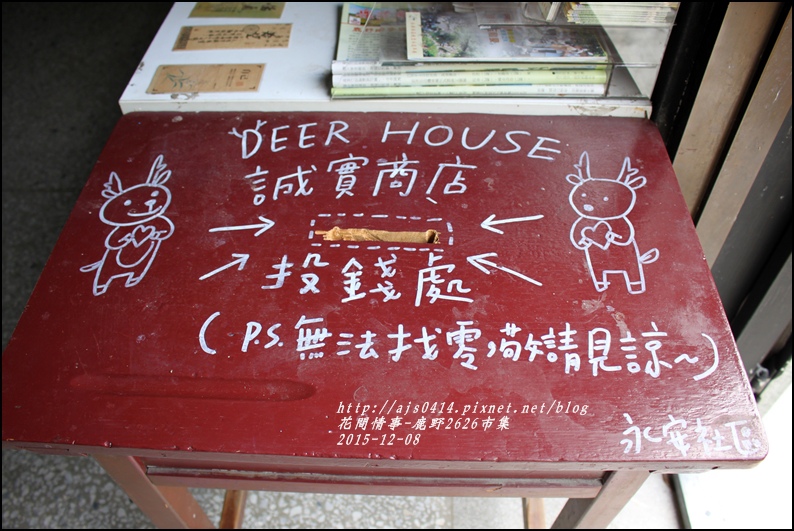 DEER HOUSE
誠實商店
投錢處
(P.S.無法找零,敬請見諒~)
永安社區
http://ajs0414.pixnet.net/blog
花間情事-鹿野2626市集
2015-12-08